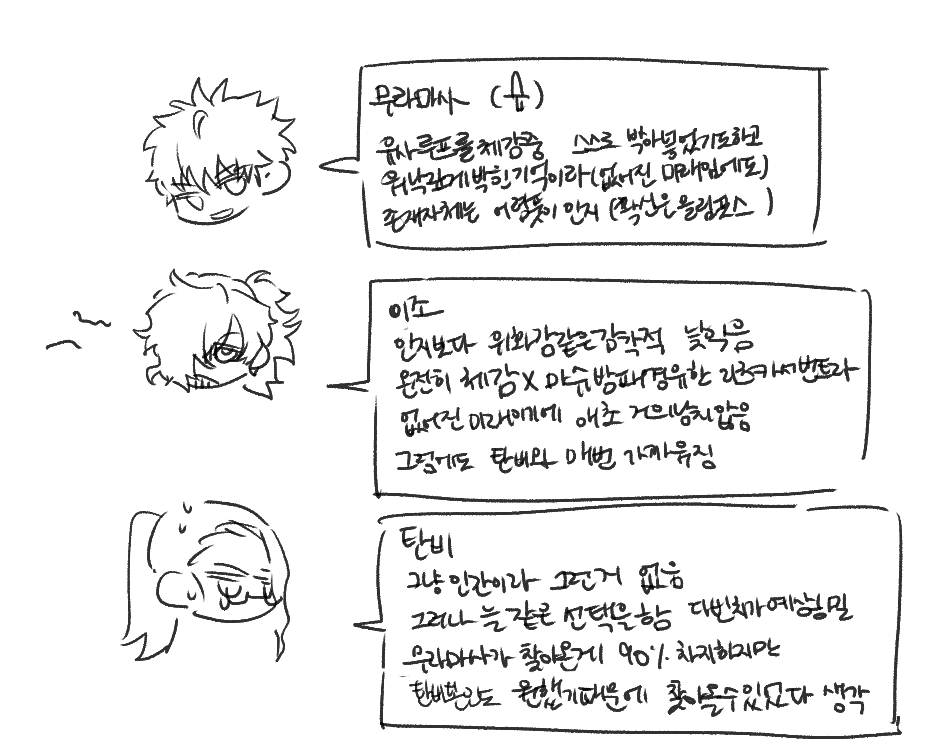 무라마사 ( )
유사루프를 체감중 스스로 박아넣었기도하고
워낙깊게박힌기억이라(없어진 미래임에도)
존재자체는 어렴풋이 인지 (확신은올림포스 )
이조
인지보다 위화감같은감각적 낯익음
온전히 체감X 마슈방패경유한 리츠카서번트라
없어진미래이기에 애초 거의남지않음
그럼에도 탄비와 매번 가까워짐
탄비
그냥인간이라 그런거 없음
그러나 늘같은 선택을함
무라마사가 찾아온게 90% 차지하지만
탄비본인도 원했기때문에 찾아올수있었다 생각